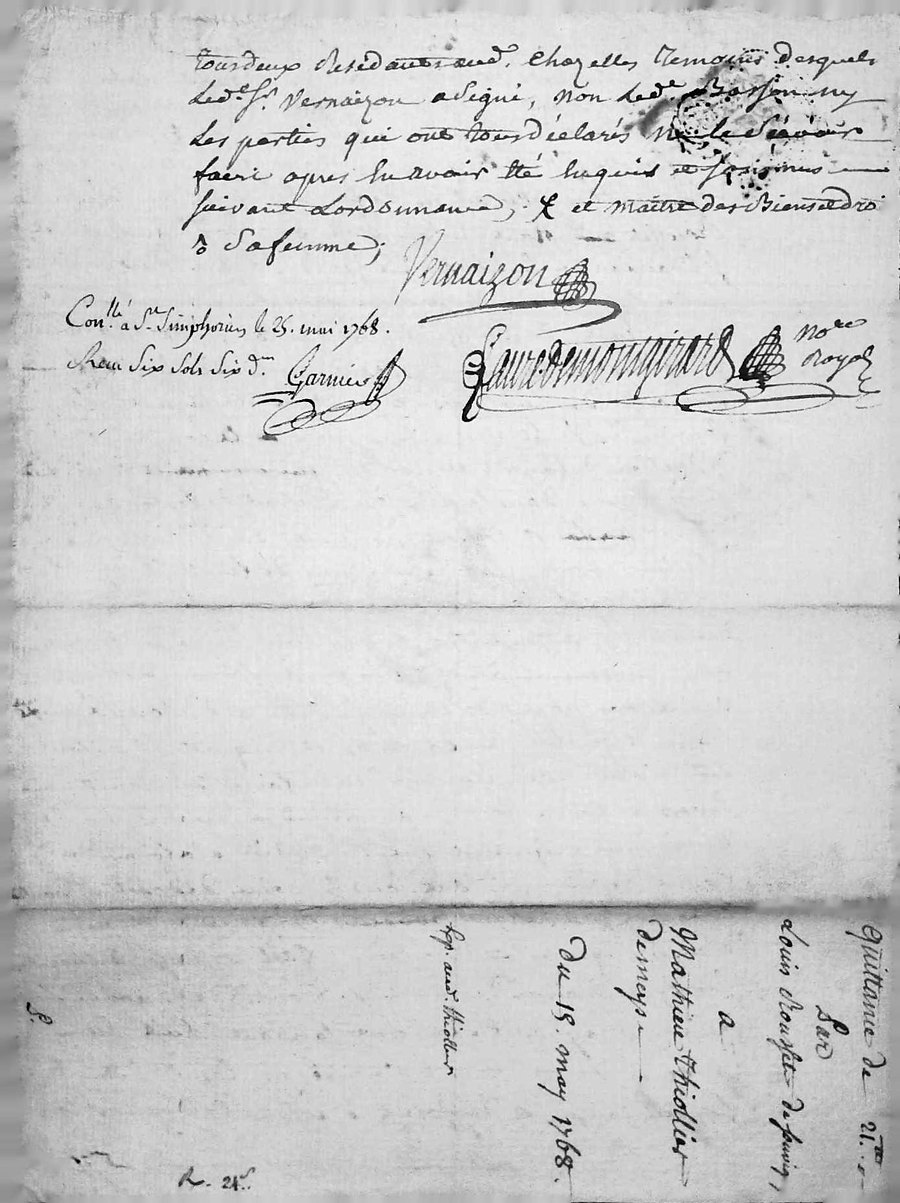 tous deux residants aud. Chazelles temoins desquels
Led.t Sr. Vernaizon a signé, non Led.t Basson ny
Les parties qui ont tous déclarés ne le sçavoir
faire apres en avoir été enquis et sommés
suivant Lordonnance, et maitre des Biens et droi
ts de sa femme;
Vernaizon
Con.llé a St. Simphorien le 25. mai 1768.
Reçu Six Sols Six d.rs
Garnier
Faure de montgirard no.re
royal
Quittance de 21.tt
Par
Louis Rousset
a
Mathieu thiollier
de meys
du 15. may 1768.
Exp. aud. thiollier
R. 21.s